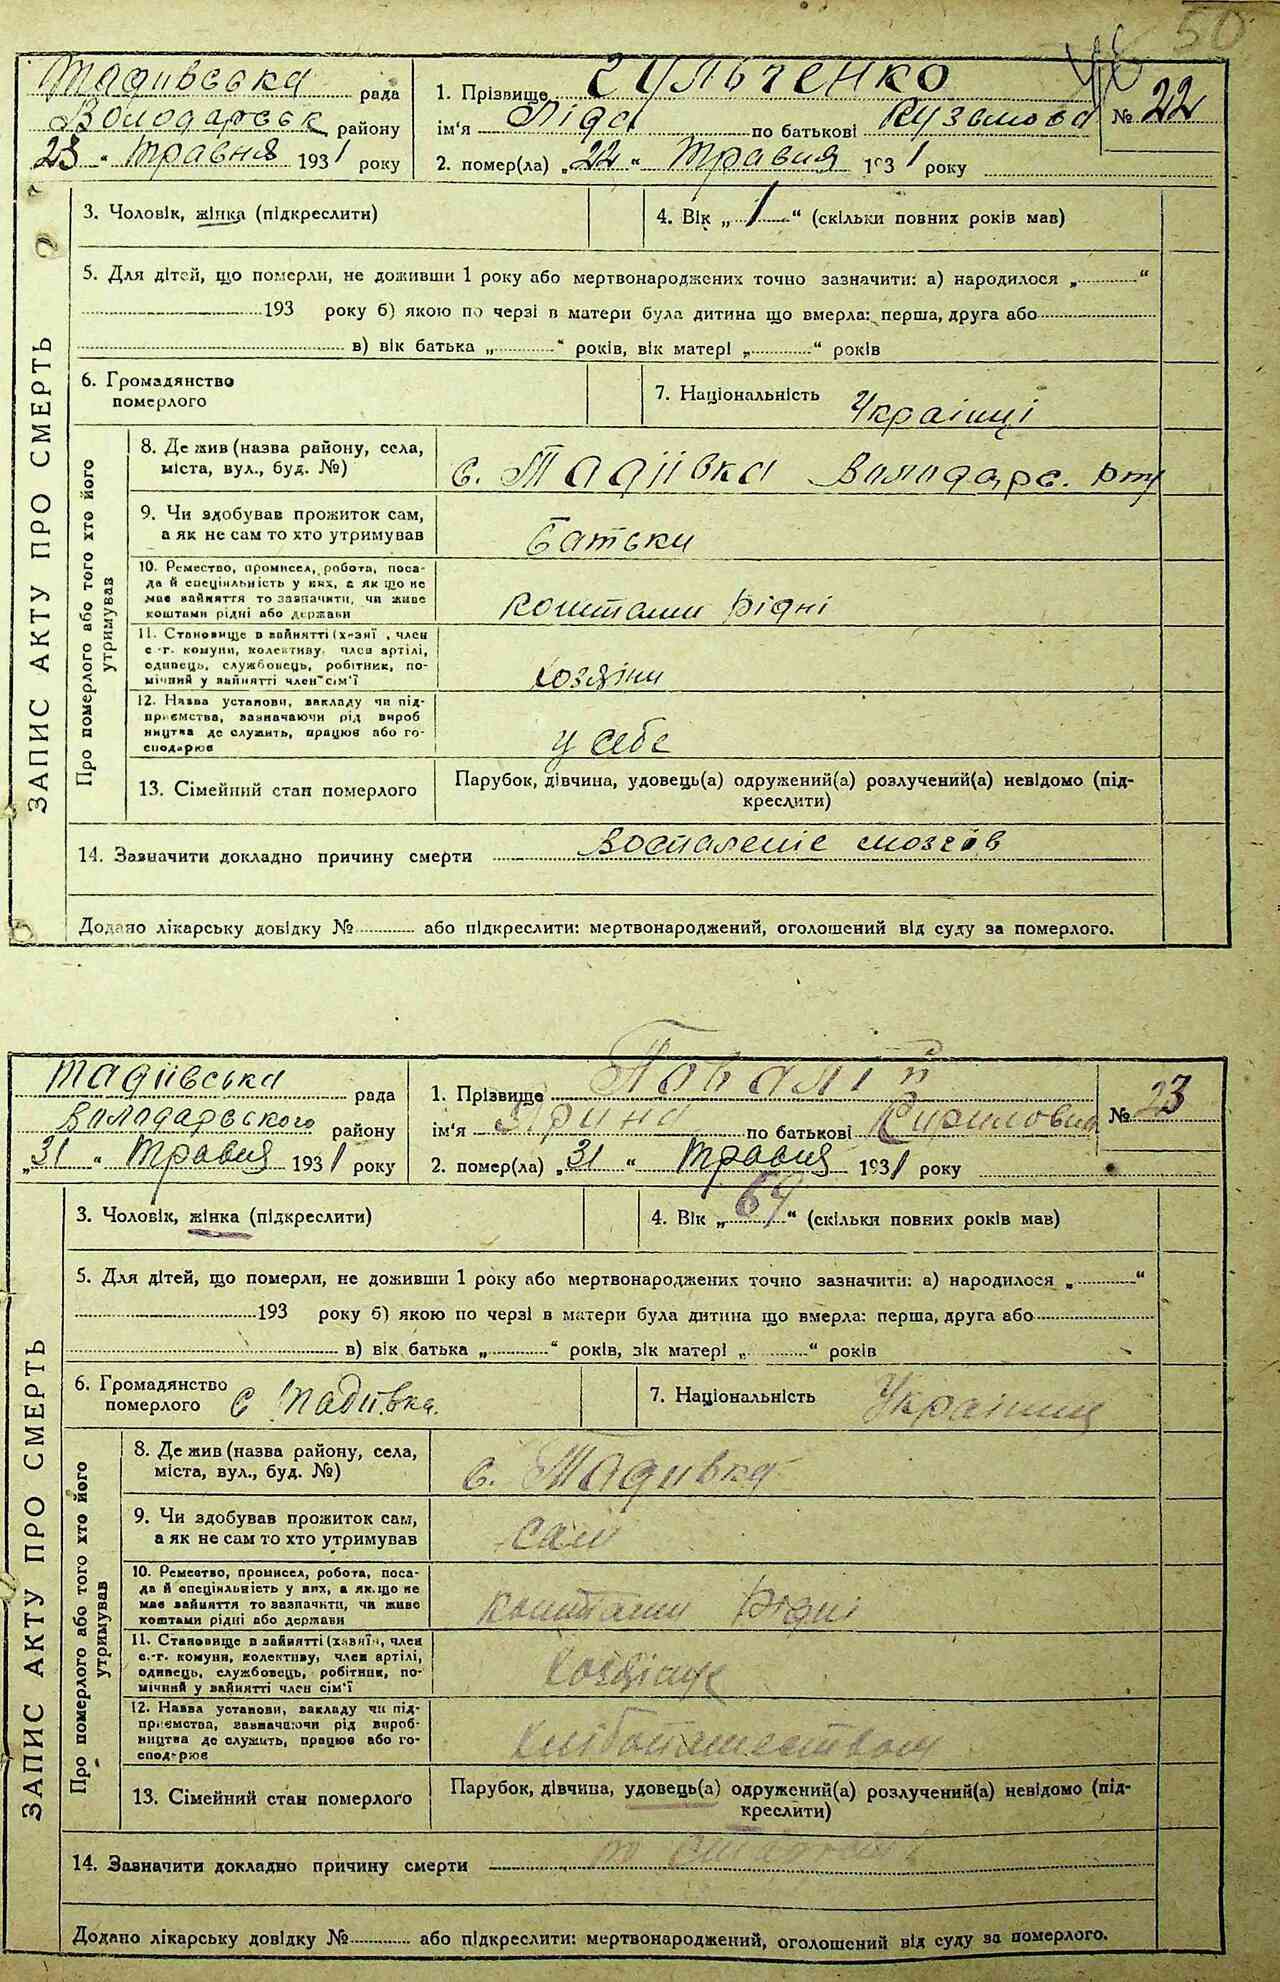 50
Тадіівська рада
Володарськ району
23 " травня 1931 року
1. Прізвище Гульченко
ім'я Ліда по батькові Кузьмова
2. помер(ла) "22" Травня 1931 року
№ 22
ЗАПИС АКТУ ПРО СМЕРТЬ
3. Чоловік, жінка (підкреслити)
4. Вік „ 1 “ (скільки повних років мав)
5. Для дітей, що померли, не доживши 1 року або мертвонароджених точно зазначити: а) народилося „ “
193 року б) якою по черзі в матери була дитина що вмерла: перша, друга або
в) вік батька „ “ років, вік матері „ “ років
6. Громадянство
померлого
7. Національність Украінці
Про померлого або того хто його
утримував
8. Де жив (назва району, села,
міста, вул., буд. №)
с. Тадіівка Володарс. р-ну
9. Чи здобував прожиток сам,
а як не сам то хто утримував
Батьки
10. Ремество, промисел, робота, поса-
да й спеціяльність у них, а як що не
має зайняття то зазначити, чи живе
коштами рідні або держави
коштами рідні
11. Становище в зайнятті (хазяї, член
с.-г. комуни, колективу, член артілі,
одинець, службовець, робітник, по-
мічний у зайнятті член сім'ї
хозяіни
12. Назва установи, закладу чи під-
приємства, зазначаючи рід вироб
ництва де служить, працює або го-
сподарює
у себе
13. Сімейний стан померлого
Парубок, дівчина, удовець(а) одружений(а) розлучений(а) невідомо (під-
креслити)
14. Зазначити докладно причину смерти Воспаленіє мозгів
Додано лікарську довідку № або підкреслити: мертвонароджений, оголошений від суду за померлого.
Тадіівська рада
Володарського району
„31 “ Травня 1931 року
1. Прізвище Повалій
ім'я Ярина по батькові Кириловна
2. помер(ла) „31 “ Травня 1931 року
№ 23
ЗАПИС АКТУ ПРО СМЕРТЬ
3. Чоловік, жінка (підкреслити)
4. Вік „ 69 “ (скільки повних років мав)
5. Для дітей, що померли, не доживши 1 року або мертвонароджених точно зазначити: а) народилося „ “
193 року б) якою по черзі в матери була дитина що вмерла: перша, друга або
в) вік батька „ “ років, зік матері „ “ років
6. Громадянство
померлого с Тадіівка.
7. Національність Украінци
Про померлого або того хто його
утримував
8. Де жив (назва району, села,
міста, вул., буд. №)
с. Тадивка
9. Чи здобував прожиток сам,
а як не сам то хто утримував
сам
10. Ремество, промисел, робота, поса-
да й спеціяльність у них, а як що не
має зайняття то зазначити, чи живе
коштами рідні або держави
коштами Рідні
11. Становище в зайнятті (хазяїн, член
с.-г. комуни, колективу, член артілі,
одинець, службовець, робітник, по-
мічний у зайнятті член сім'ї
12. Назва установи, закладу чи під-
приємства, зазначаючи рід вироб-
ництва де служить, працює або го-
сподарює
13. Сімейний стан померлого
Парубок, дівчина, удовець(а) одружений(а) розлучений(а) невідомо (під-
креслити)
14. Зазначити докладно причину смерти
Додано лікарську довідку № або підкреслити: мертвонароджений, оголошений від суду за померлого.